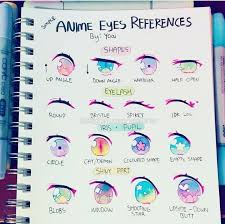 SIMPLE
ANIME EYES REFERENCES
By: Yoai
SHAPES
UP ANGLE DOWN ANGLE WARRIOR HALF OPEN
EYELASH
ROUND BRISTLE SPIKEY IDK LOL
IRIS - PUPIL
CIRCLE CAT/DEMON COLOURED SHAPE EMPTY SHAPE
SHINY PART
BLOBS WINDOW SHOOTING STAR UPSIDE-DOWN BUTT